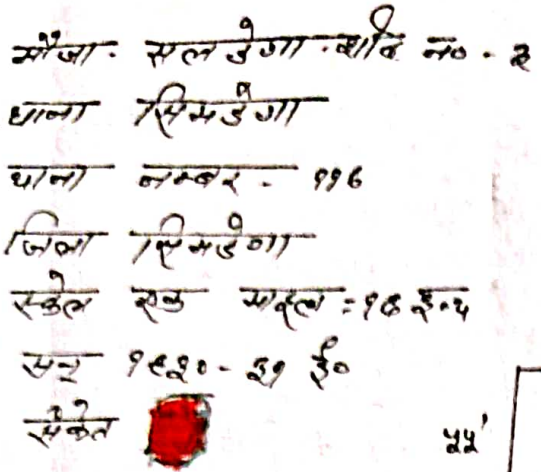 मौजा - सलडेगा - शीट न० - २
थाना सिमडेगा
थाना नम्बर - ११६
जिला सिमडेगा
स्केल एक माइल = १६ इन्च
सन्
संकेत
५५'